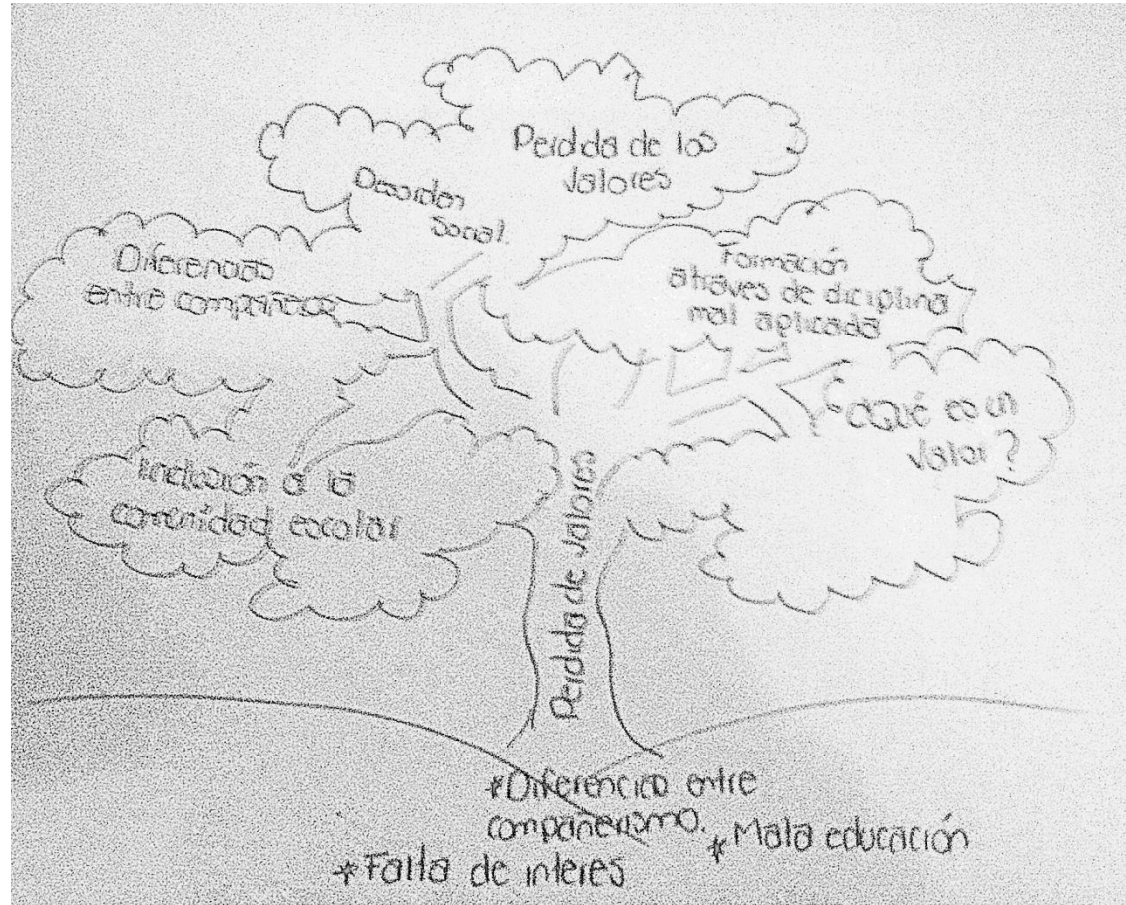 Perdida de los
valores
Desorden
social.
Diferencias
entre compañeros
Formación
através de diciplina
mal aplicada
¿Qué es un
valor?
a la
comunidad escolar
Perdida de valores
*Diferencias entre
compañerismo.
*Mala educación
*Falta de interes